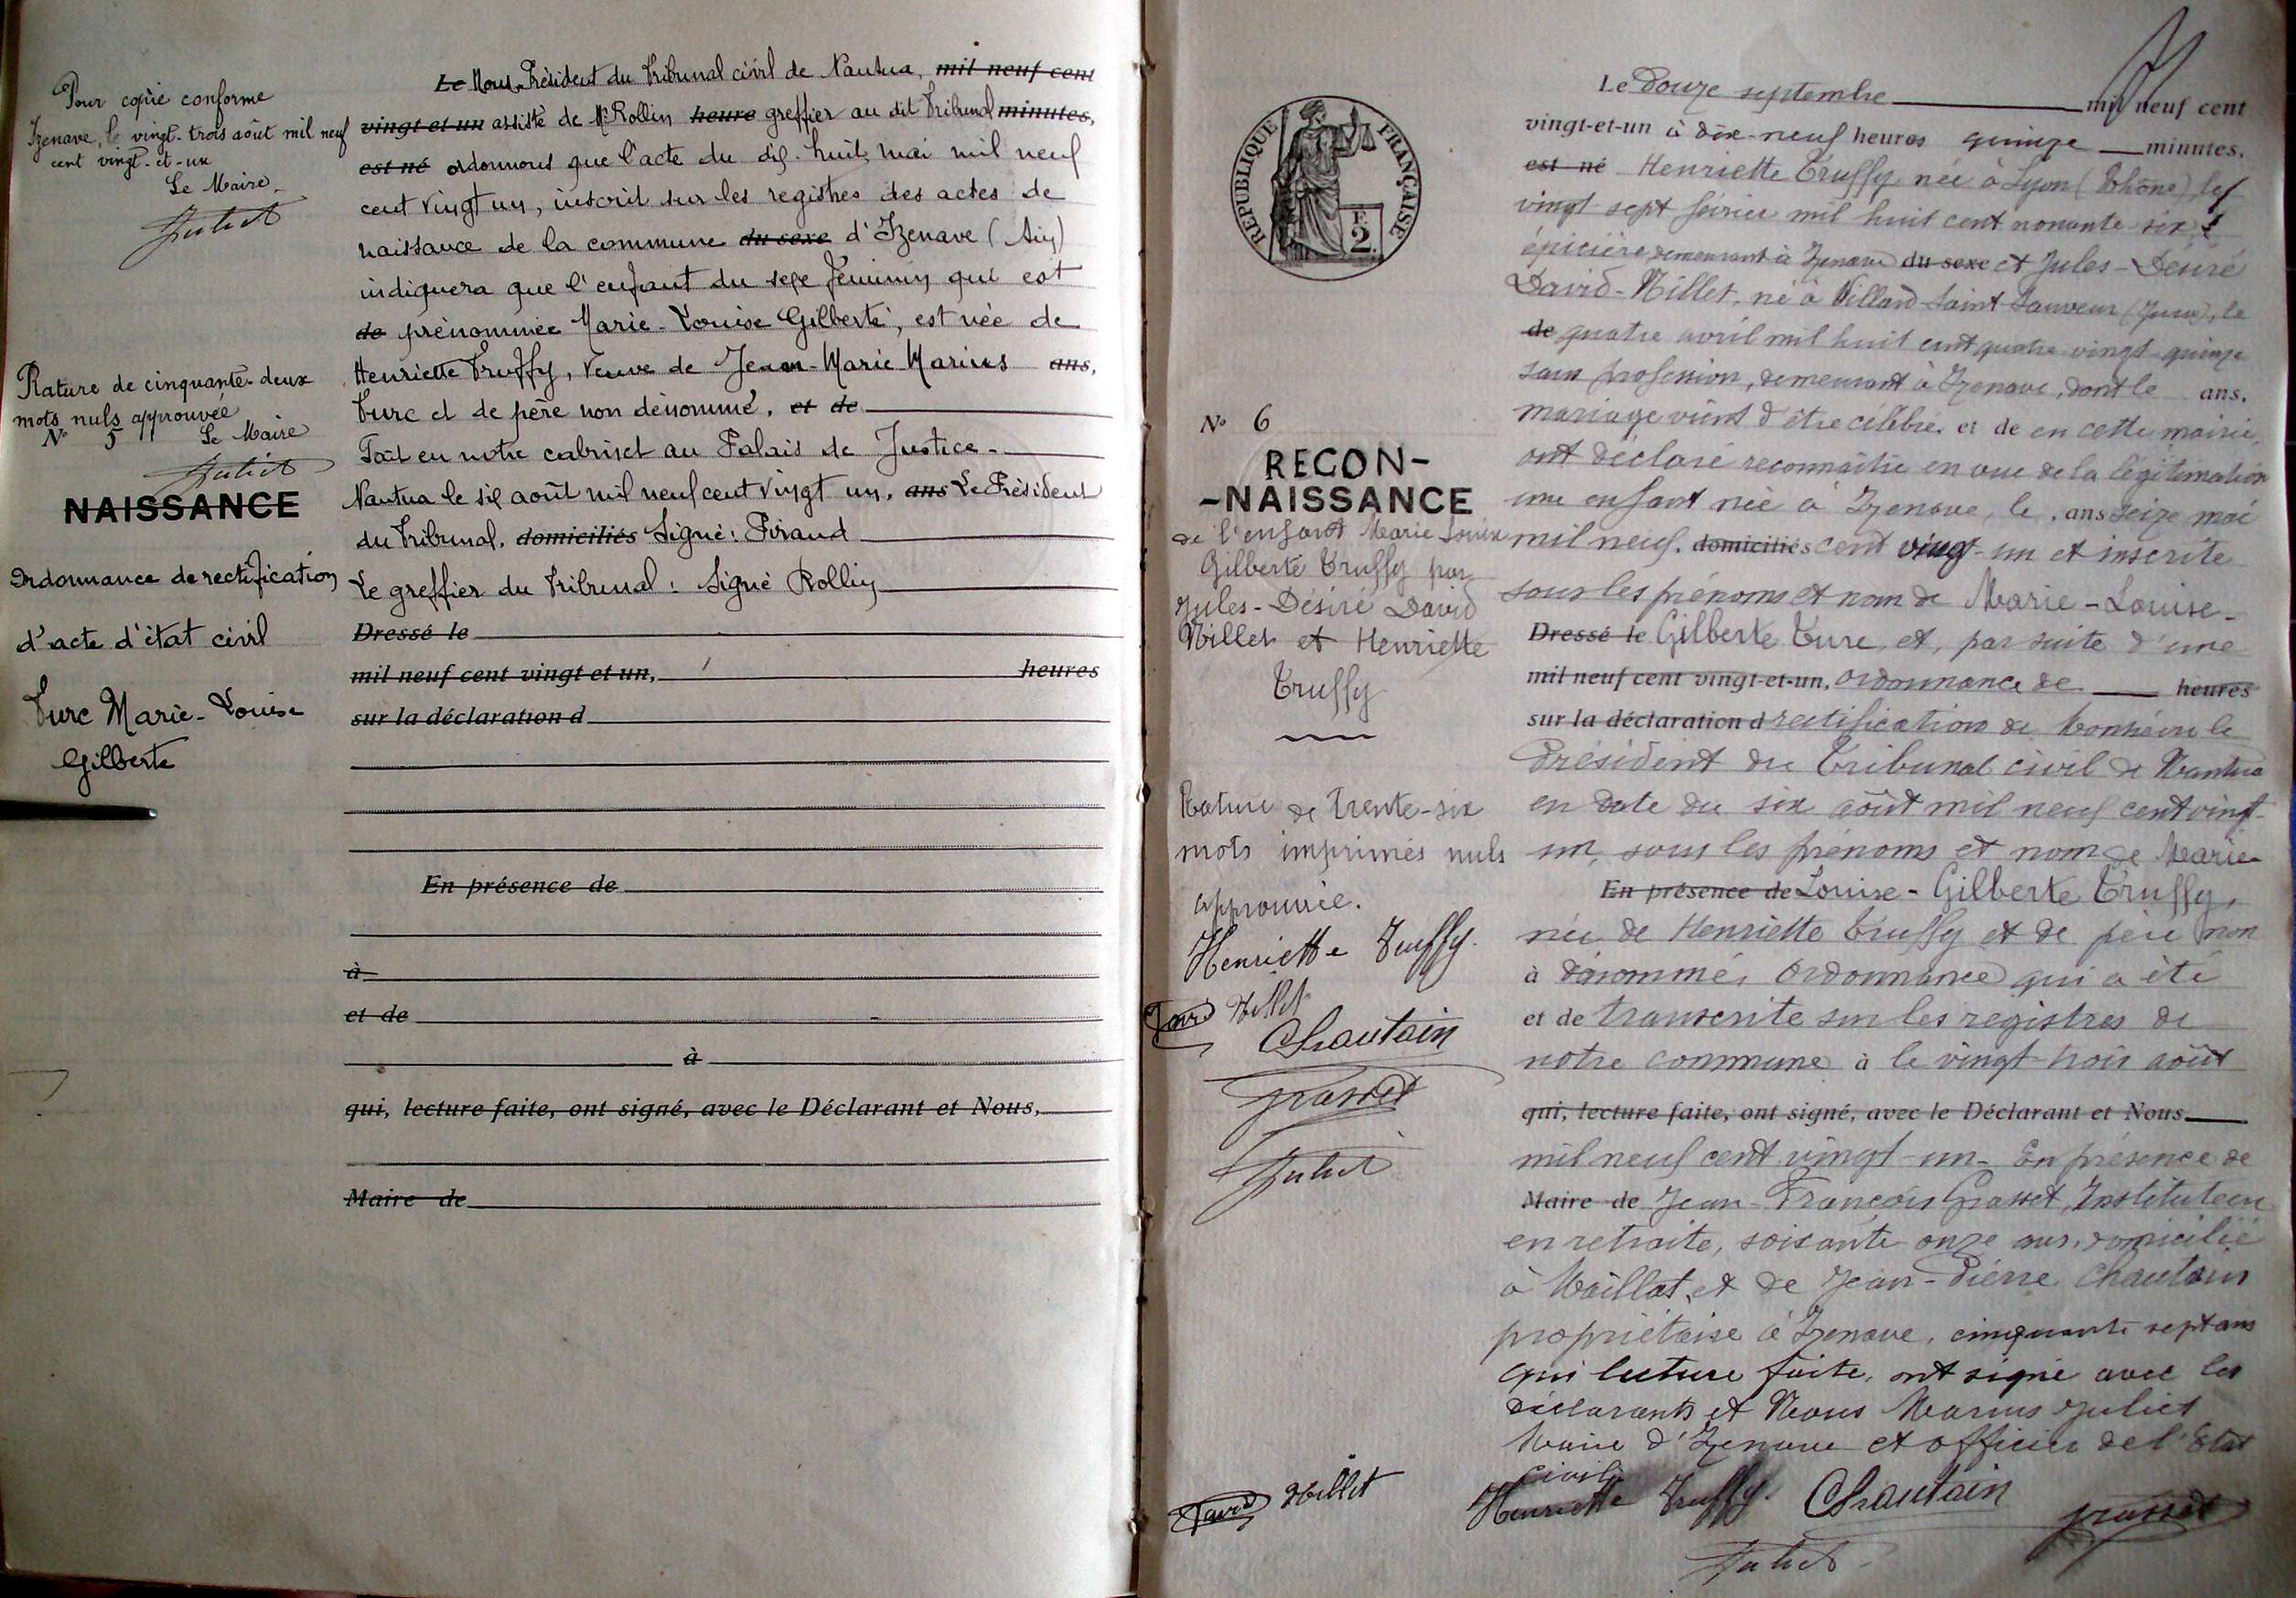 Pour copie conforme
Izenave, le vingt-trois août mil neuf
cent vingt-et-un
Le Maire
Juliet
Rature de cinquante-deux
mots nuls approuvée
Le Maire
N° 5
Juliet
NAISSANCE
Ordonnance de rectification
d'acte d'état civil
Turc Marie-Louise
Gilberte
Le Nous, Président du Tribunal civil de Nantua, mil neuf cent
vingt et un assisté de Mr Rollin heure greffier au dit Tribunal minutes,
est né ordonnons que l'acte du dix-huit mai mil neuf
cent vingt un, inscrit sur les registres des actes de
naissance de la commune du sexe d'Izenave (Ain)
indiquera que l'enfant du sexe féminin qui est
de prénommée Marie-Louise Gilberte, est née de
Henriette Truffy, veuve de Jean-Marie Marius ans,
Turc et de père non dénommé. et de
Fait en notre cabinet au Palais de Justice.
Nantua le six août mil neuf cent vingt un. ans Le Président
du Tribunal. domiciliés Signé: Piraud
Le greffier du Tribunal : Signé Rollin
Dressé le
mil neuf cent vingt et un, heures
sur la déclaration d
En présence de
à
et de
à
qui, lecture faite, ont signé, avec le Déclarant et Nous,
Maire de
REPUBLIQUE FRANÇAISE
2 F.
N° 6
RECON-
-NAISSANCE
de l'enfant Marie Louise
Gilberte Truffy par
Jules-Désiré David
Nillet et Henriette
Truffy
Rature de trente-six
mots imprimés nuls
approuvée.
Henriette Truffy.
David Nillet
Chautain
Grasset
Juliet
Le Douze septembre mil neuf cent
vingt-et-un à dix-neuf heures quinze minutes.
est né Henriette Truffy, née à Lyon (Rhône), le
vingt sept février mil huit cent nonante six
épicière demeurant à Izenave du sexe et Jules-Désiré
David-Nillet, né à Villard Saint Sauveur (Jura), le
de quatre avril mil huit cent quatre vingt quinze
sans profession, demeurant à Izenave, dont le ans.
mariage vient d'être célébré. et de en cette mairie,
ont déclaré reconnaître en vue de la légitimation
une enfant née à Izenave, le . ans seize mai
mil neuf. domiciliés cent vingt-un et inscrite
sous les prénoms et nom de Marie-Louise-
Dressé le Gilberte Turc, et, par suite d'une
mil neuf cent vingt-et-un, ordonnance de heures
sur la déclaration d rectification de Monsieur le
Président du Tribunal civil de Nantua
en date du six août mil neuf cent vingt-
un, sous les prénoms et nom de Marie-
En présence de Louise-Gilberte Truffy,
née de Henriette Truffy et de père non
à dénommé, ordonnance qui a été
et de transcrite sur les registres de
notre commune à le vingt-trois août
qui, lecture faite, ont signé, avec le Déclarant et Nous
mil neuf cent vingt-un. En présence de
Maire de Jean-François Grasset, Instituteur
en retraite, soixante onze ans, domicilié
à Maillat, et de Jean-Pierre Chautain
propriétaire à Izenave, cinquante sept ans
qui lecture faite, ont signé avec les
déclarants et Nous Marius Juliet
Maire d'Izenave et officier de l'Etat
civil
David Nillet
Henriette Truffy. Chautain Grasset
Juliet